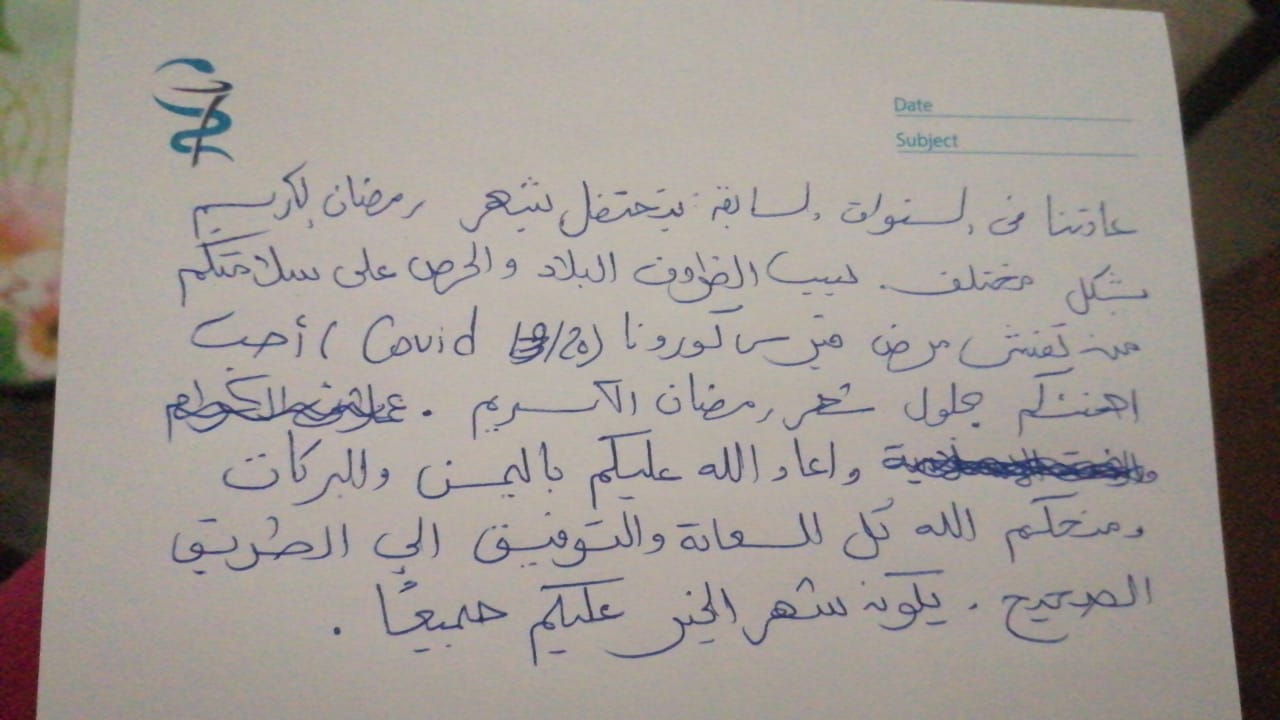 Date
Subject
عادتنا في السنوات السابقة نحتفل بشهر رمضان الكريم
بشكل مختلف. بسبب الظروف البلاد والحرص على سلامتكم
من تفشي مرض فيرس كورونا (Covid 19/20) أحب
اهنئكم بحلول شهر رمضان الكريم .
واعاد الله عليكم باليمن والبركات
ومنحكم الله كل السعادة والتوفيق الي الطريق
الصحيح . يكون شهر الخير عليكم جميعًا .